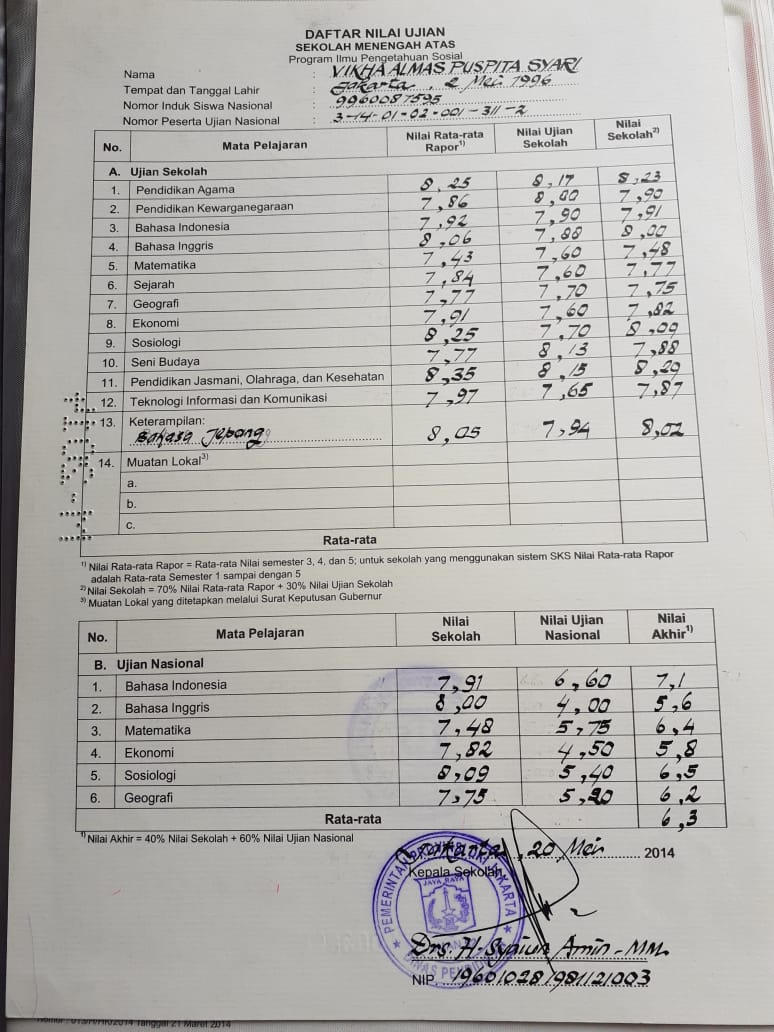 DAFTAR NILAI UJIAN
SEKOLAH MENENGAH ATAS
Program Ilmu Pengetahuan Sosial
Nama : VIKHA ALMAS PUSPITA SYARI
Tempat dan Tanggal Lahir : Jakarta, 2 Mei 1996
Nomor Induk Siswa Nasional : 9960087595
Nomor Peserta Ujian Nasional : 3-14-01-02-001-311-2
No. Mata Pelajaran Nilai Rata-rata Rapor1) Nilai Ujian Sekolah Nilai Sekolah2)
A. Ujian Sekolah
1. Pendidikan Agama 8,25 8,17 8,23
2. Pendidikan Kewarganegaraan 7,86 8,00 7,90
3. Bahasa Indonesia 7,92 7,90 7,91
4. Bahasa Inggris 8,06 7,88 8,00
5. Matematika 7,43 7,60 7,48
6. Sejarah 7,84 7,60 7,77
7. Geografi 7,77 7,70 7,75
8. Ekonomi 7,91 7,60 7,82
9. Sosiologi 8,25 7,70 8,09
10. Seni Budaya 7,77 8,13 7,88
11. Pendidikan Jasmani, Olahraga, dan Kesehatan 8,35 8,15 8,29
12. Teknologi Informasi dan Komunikasi 7,97 7,65 7,87
13. Keterampilan:
Bahasa Jepang 8,05 7,94 8,02
14. Muatan Lokal3)
a.
b.
c.
Rata-rata
1) Nilai Rata-rata Rapor = Rata-rata Nilai semester 3, 4, dan 5; untuk sekolah yang menggunakan sistem SKS Nilai Rata-rata Rapor
adalah Rata-rata Semester 1 sampai dengan 5
2) Nilai Sekolah = 70% Nilai Rata-rata Rapor + 30% Nilai Ujian Sekolah
3) Muatan Lokal yang ditetapkan melalui Surat Keputusan Gubernur
No. Mata Pelajaran Nilai Sekolah Nilai Ujian Nasional Nilai Akhir1)
B. Ujian Nasional
1. Bahasa Indonesia 7,91 6,60 7,1
2. Bahasa Inggris 8,00 4,00 5,6
3. Matematika 7,48 5,75 6,4
4. Ekonomi 7,82 4,50 5,8
5. Sosiologi 8,09 5,40 6,5
6. Geografi 7,75 5,20 6,2
Rata-rata 6,3
1) Nilai Akhir = 40% Nilai Sekolah + 60% Nilai Ujian Nasional
Jakarta, 20 Mei 2014
Kepala Sekolah,
JAYA RAYA
Drs. H. Syaiun Amin-MM
NIP. 196010281981121003
2014 Tanggal 21 Maret 2014